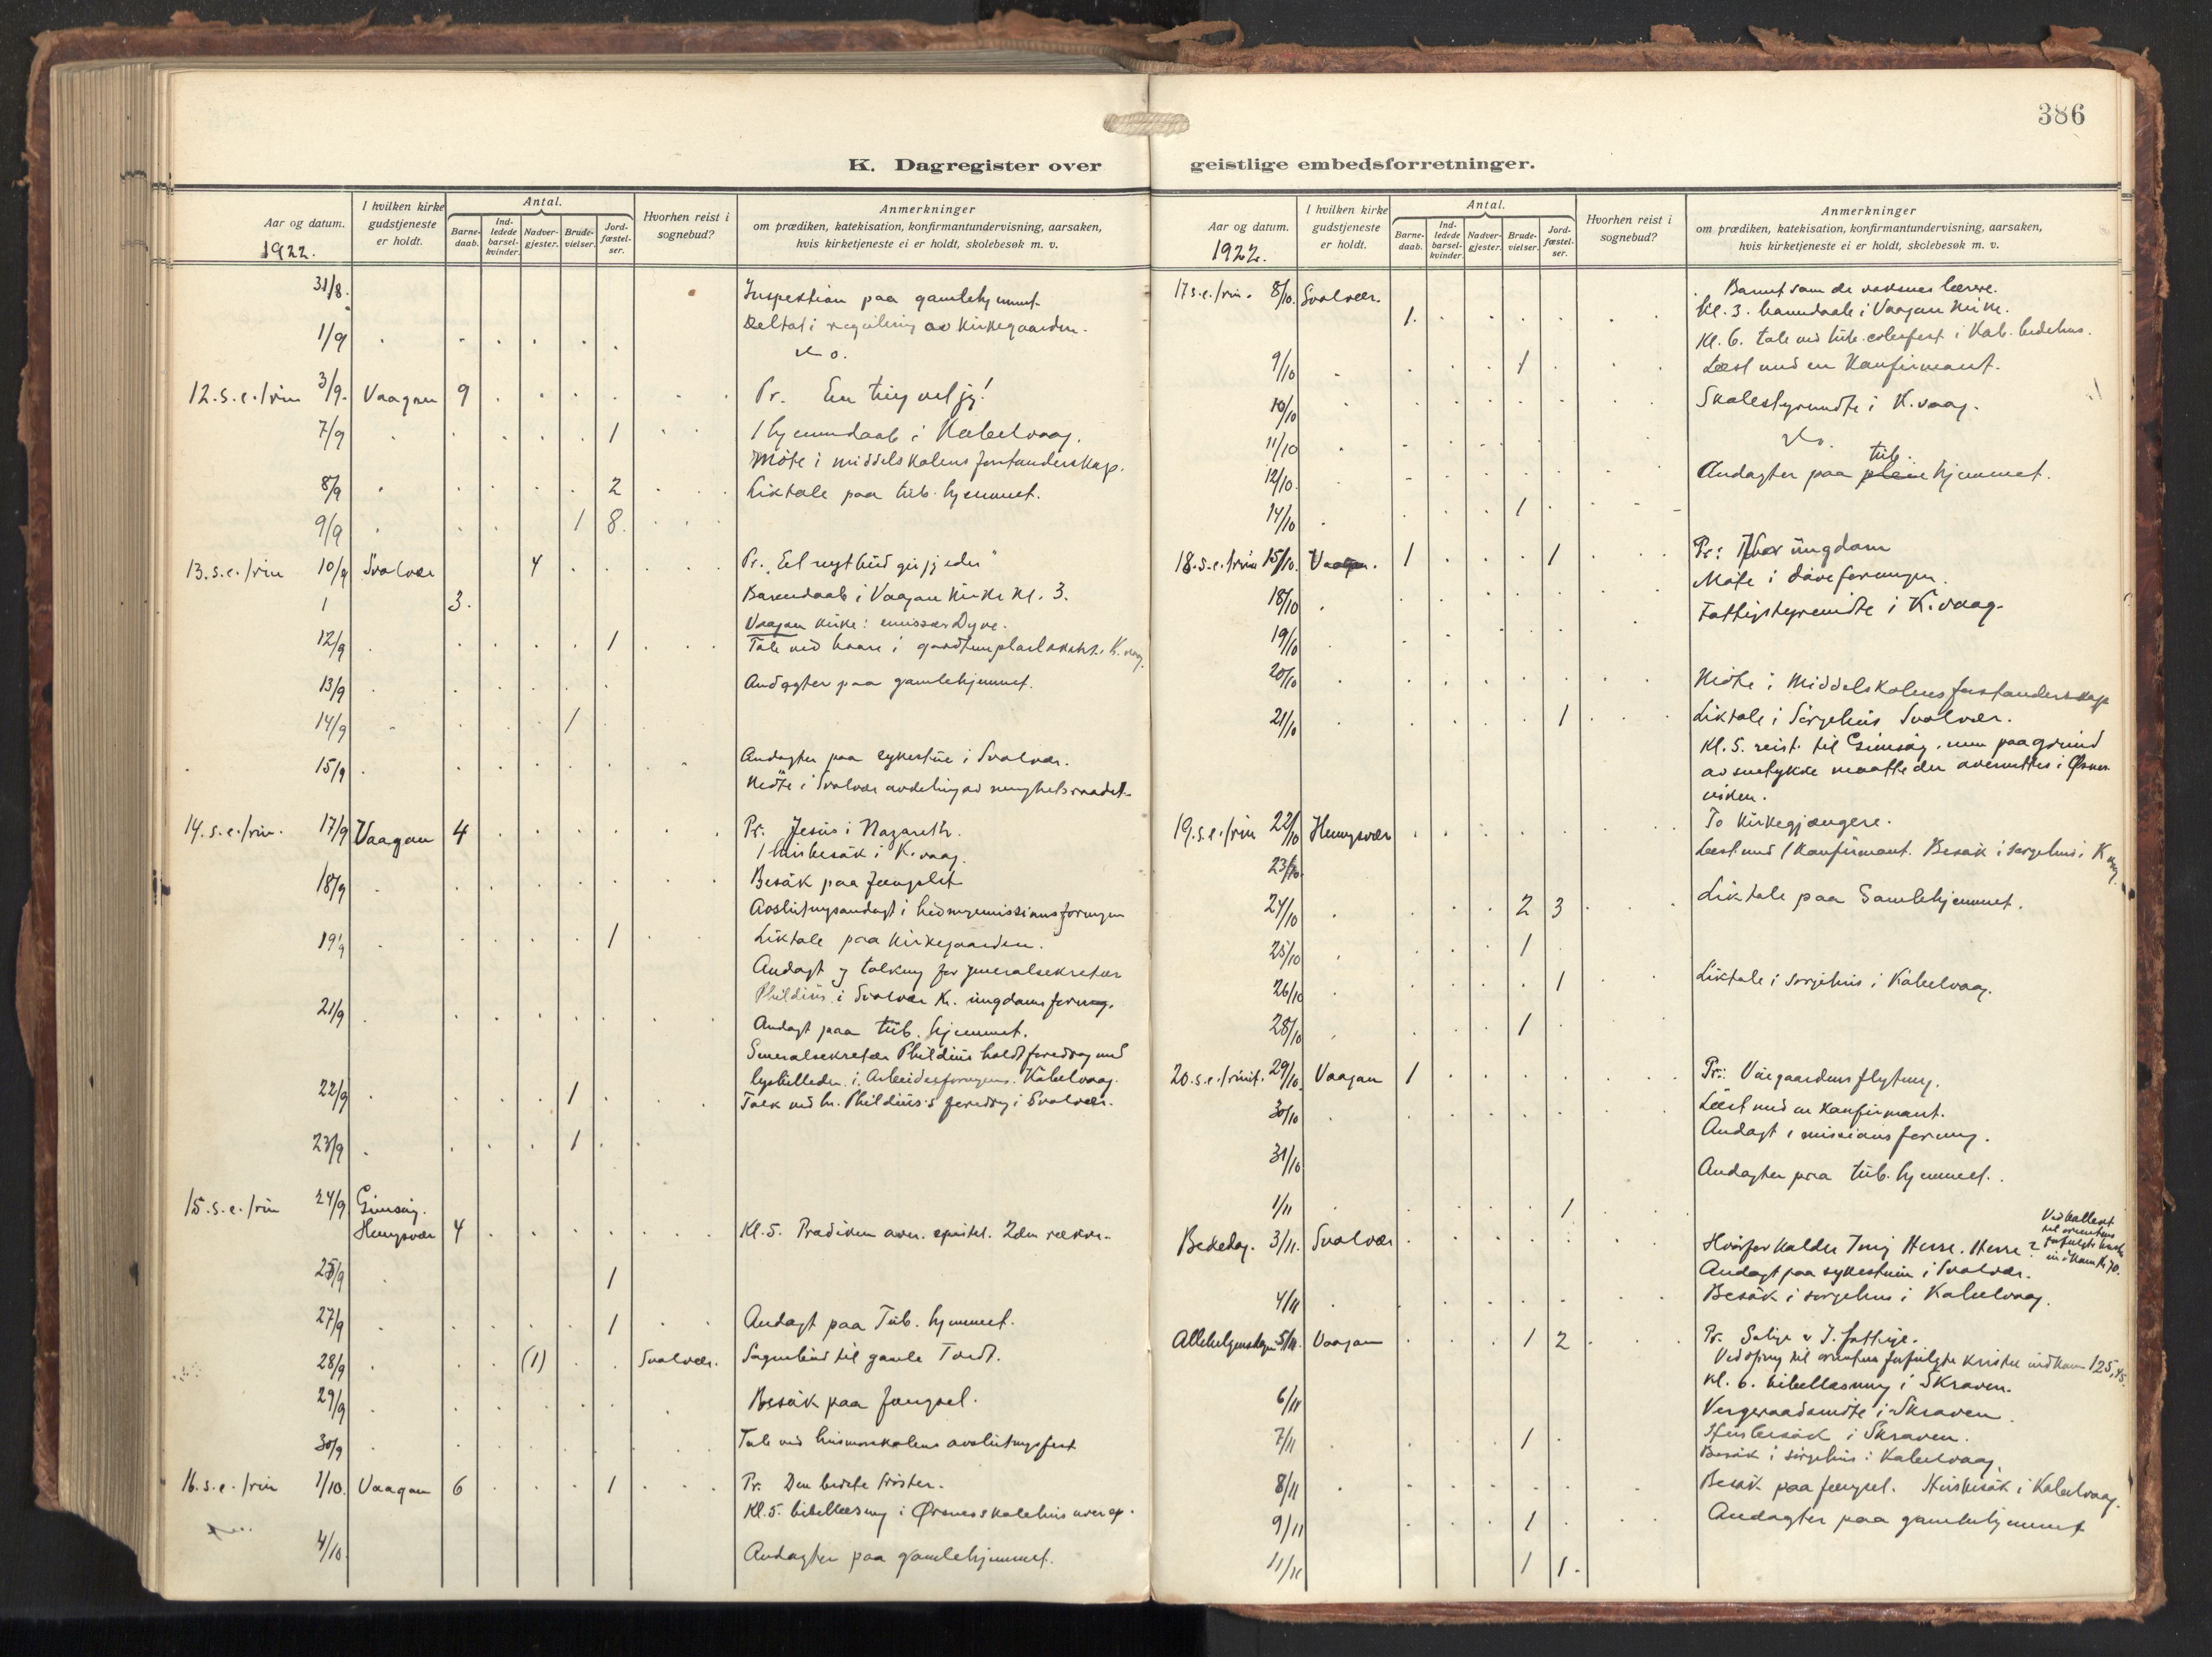 386
K. Dagregister over geistlige embedsforretninger.
Aar og datum. 1922.
I hvilken kirke gudstjeneste er holdt.
Antal.
Barne-daab.
Ind-ledede barsel-kvinder.
Nadver-gjester.
Brude-vielser.
Jord-fæstel-ser.
Hvorhen reist i sognebud?
Anmerkninger
om prædiken, katekisation, konfirmantundervisning, aarsaken,
hvis kirketjeneste ei er holdt, skolebesøk m. v.
31/8. Inspektion paa gamlehjemmet.
1/9 Deltat i regulering av kirkegaarden.
do.
12. s. e. trin 3/9. Vaagan 9 Pr. En ting vet jeg!
7/9 1 1 hjemmedaab i Kabelvaag.
Möte i middelskolens forstanderskap.
8/9 2 Liktale paa tub. hjemmet.
9/9 1 8
13. s. e. trin 10/9 Svolvær 4 Pr. "Et nyt bud gir jeg eder"
3. Barnedaab i Vaagan kirke kl. 3.
Vaagan kirke: emissær Dyve.
12/9 1 Tale ved baare i goodtemplarlokalet. K. vaag.
13/9 Andagter paa gamlehjemmet.
14/9 1
15/9 Andagter paa sykestue i Svolvær.
Möte i Svolvær avdeling av menighetsraadet.
14. s. e. trin. 17/9 Vaagan 4 Pr. Jesus i Nazareth.
1 husbesök i K. vaag.
18/9 Besök paa fængslet
Avslutningsandagt i hedningemissionsforeningen
19/9 1 Liktale paa kirkegaarden.
Andagt og tolkning for generalsekretær
Phildius i Svolvær kr. ungdomsforening.
21/9 Andagt paa tub. hjemmet.
Generalsekretær Phildius holdt foredrag med
lysbilleder i Arbeidsforeningens. Kabelvaag.
22/9 1 Tolk ved hr. Phildius's foredrag i Svolvær.
23/9 1
15. s. e. trin 24/9 Gimsöy.
Henngsvær 4 Kl. 5. Prædiken over epistel. 2den række.
25/9 1
27/9 1 Andagt paa Tub. hjemmet.
28/9 (1) Svolvær. Sognebud til gamle
29/9 Besök paa fængsel.
30/9 Tale ved husmorskolens avslutningsfest
16. s. e. trin 1/10. Vaagan 6 1 Pr. Den bedste tröster.
Kl. 5. bibellæsning i Ørsnes skolehus over ep.
4/10. Andagter paa gamlehjemmet.
Aar og datum. 1922.
I hvilken kirke gudstjeneste er holdt.
Antal.
Barne-daab.
Ind-ledede barsel-kvinder.
Nadver-gjester.
Brude-vielser.
Jord-fæstel-ser.
Hvorhen reist i sognebud?
Anmerkninger
om prædiken, katekisation, konfirmantundervisning, aarsaken,
hvis kirketjeneste ei er holdt, skolebesøk m. v.
17 s. e. trin. 8/10. Svolvær. Barnet som de voksnes lærere.
1. Kl. 3. barnedaab i Vaagan kirke.
Kl. 6. tale ved tub. i Kab. bedehus.
9/10 1 Læst med en Konfirmant.
10/10 Skolestyremöte i K. vaag.
11/10 do.
12/10. Andagter paa tub. hjemmet.
14/10 1
18. s. e. trin 15/10. Vaagan. 1 1 Pr: Vor ungdom
18/10 Möte i döveforeningen.
19/10 Fattigstyremöte i K. vaag.
20/10 Möte i Middelskolens forstanderskap
21/10 1 Liktale i Sörgehus Svolvær.
Kl. 5. reist til Gimsöy. men paa grund
av snetykke maatte der overnattes i Ørsnes
viken.
19. s. e. trin 22/10 Henngsvær To kirkegjængere.
23/10 Læst med 1 Konfirmant. Besök i sorgehus i K. vaag.
24/10 2 3 Liktale paa Gamlehjemmet.
25/10 1
26/10 1 Liktale i sörgehus i Kabelvaag.
28/10 1
20. s. e. trinit. 29/10. Vaagan 1 Pr: Vingaardens flytning.
30/10 Læst med en Konfirmant.
Andagt i missionsforening.
31/10
Andagter paa tub. hjemmet.
1/11 1
Bededag. 3/11. Svolvær Hvorfor kalder I mig Herre. Herre? Ved kallekt til orientens forfulgte kristne indkom kr 70.
Andagt paa sykestuen i Svolvær.
4/11 Besök i sorgehus i Kabelvaag.
Allehelgensdagen 5/11. Vaagan 1 2 Pr. Salige er I fattige.
Ved ofring til orientens forfulgte kristne indkom 125,45.
Kl. 6. bibellæsning i Skraaven.
6/11 Vergeraadsmöte i Skraaven.
7/11 1 Husbesök i Skraaven.
Besök i sörgehus i Kabelvaag.
8/11 Besök paa fængsel. Husbesök i Kabelvaag.
9/11 1 Andagter paa gamlehjemmet
11/11 1 1.